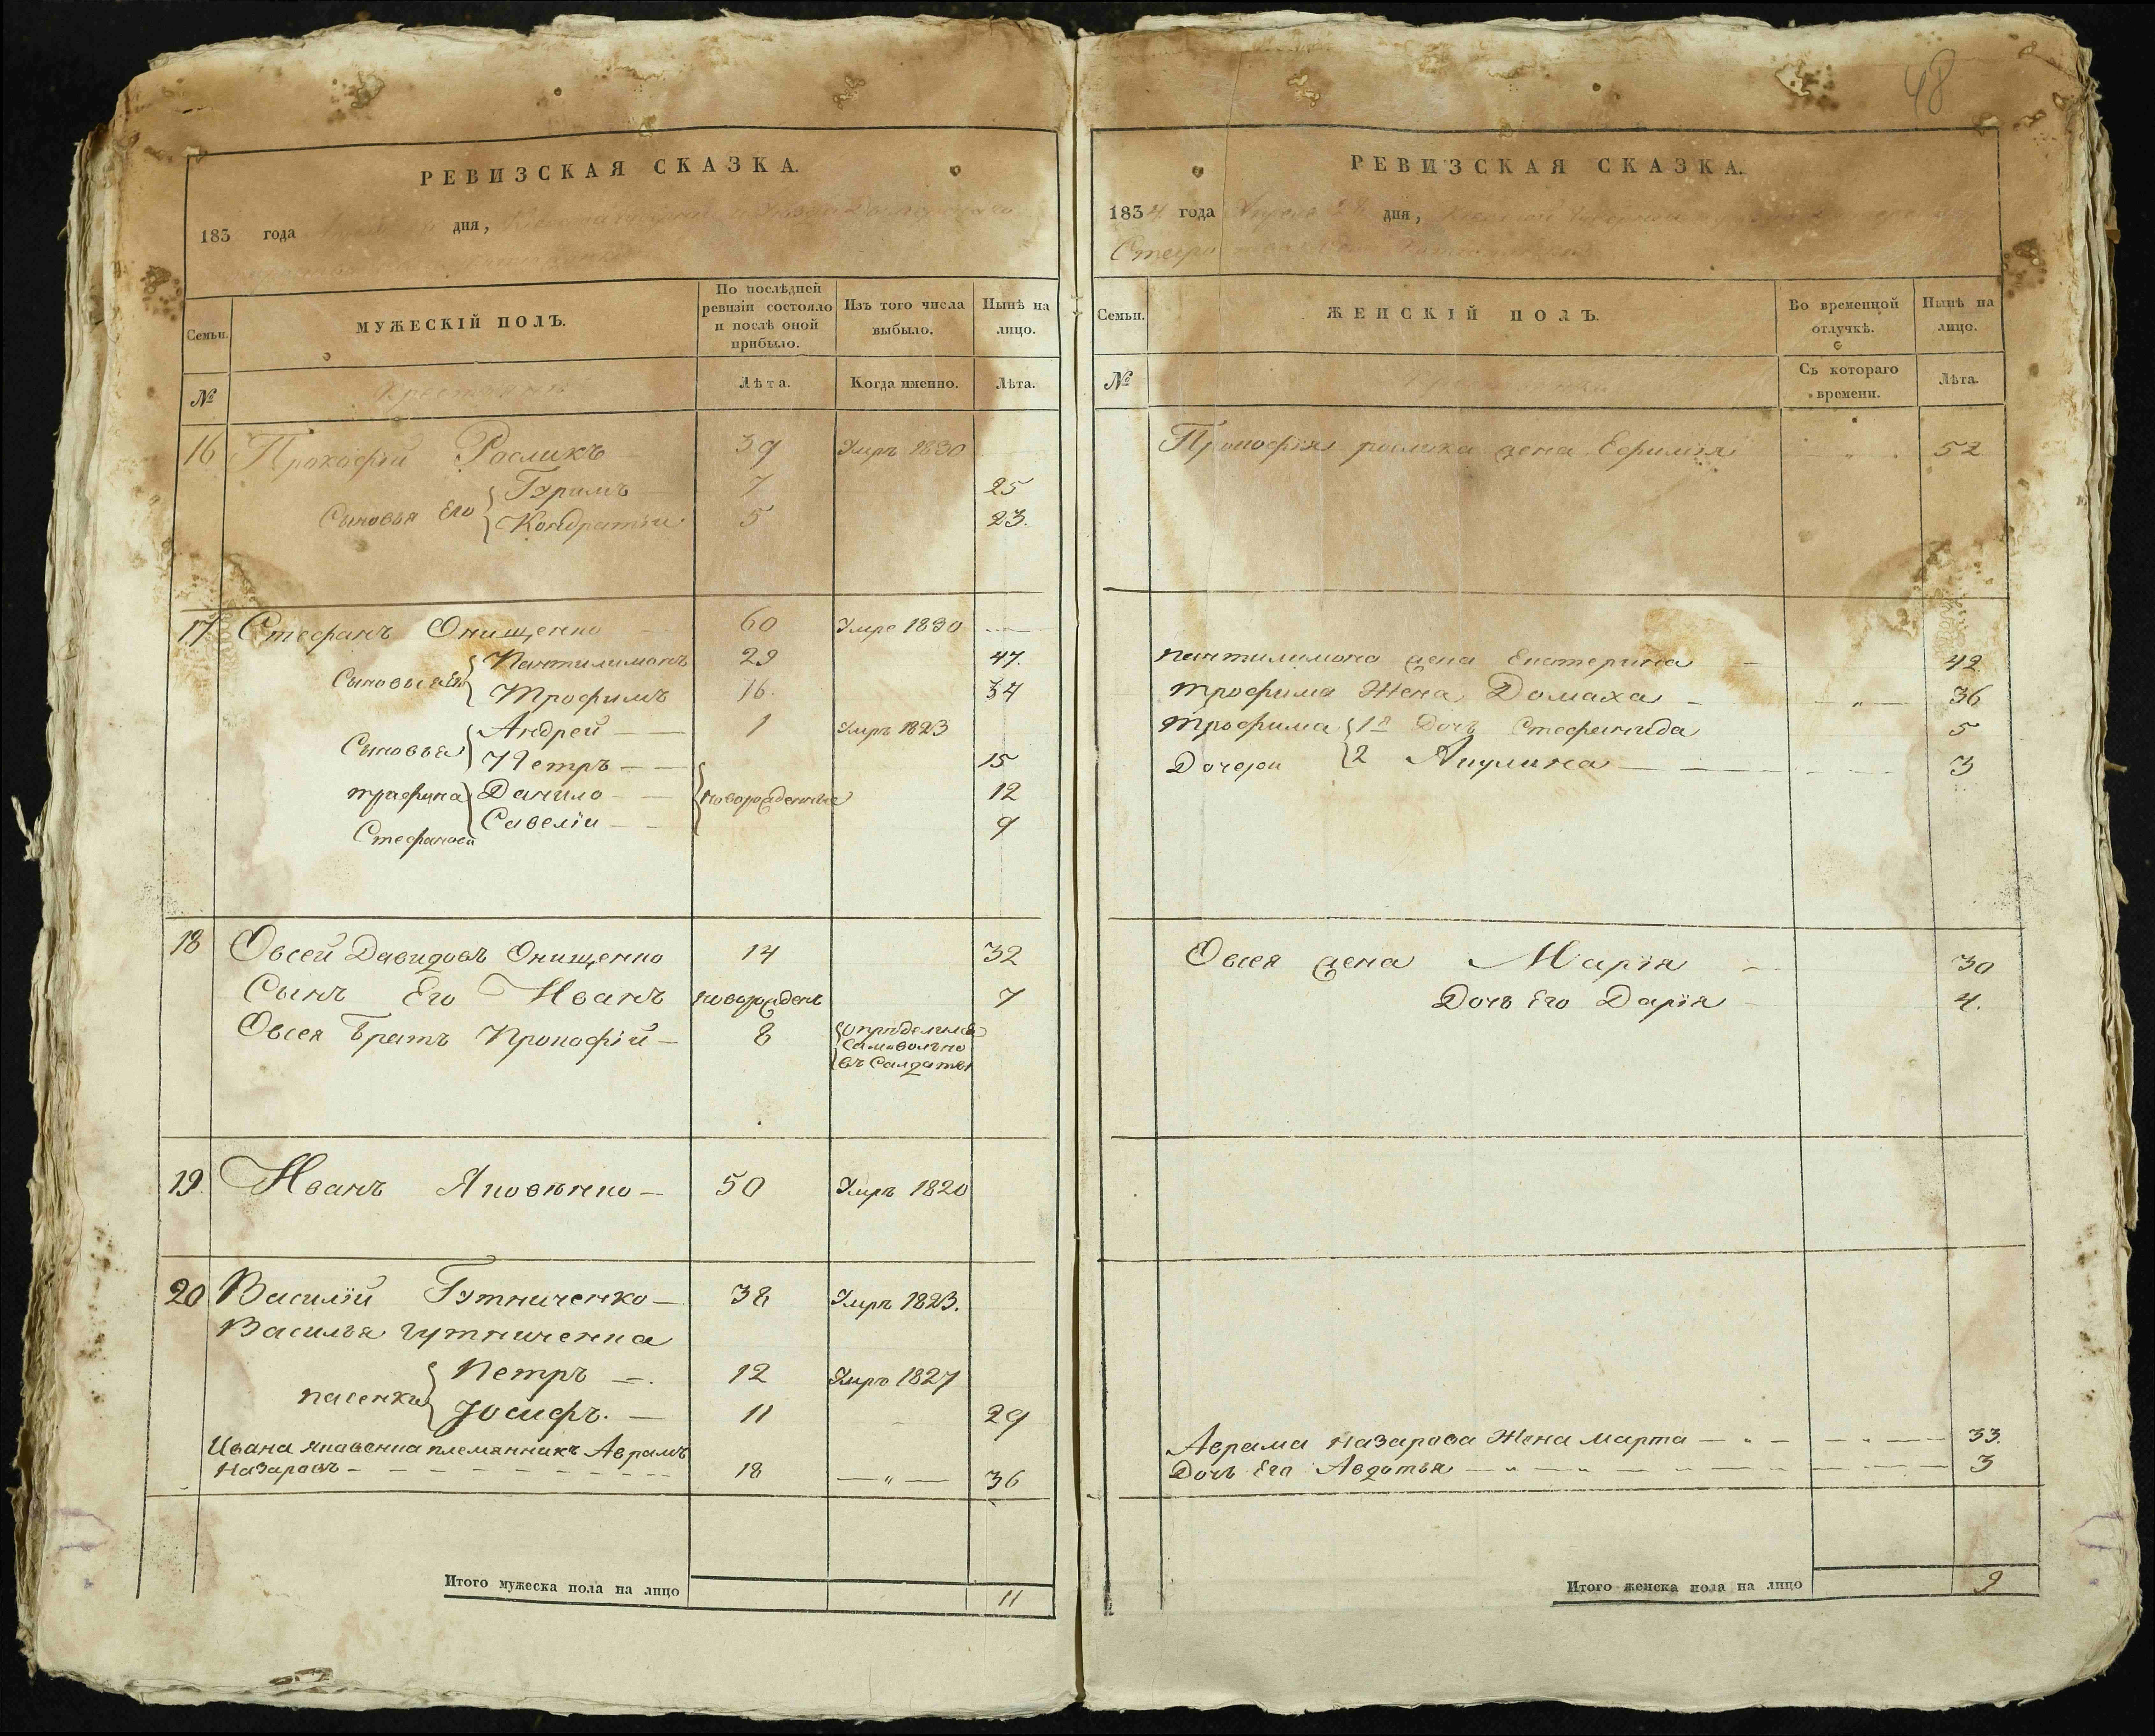 48
РЕВИЗСКАЯ СКАЗКА.
183 года дня,
Семьи.
МУЖЕСКІЙ ПОЛЪ.
По послѣдней ревизіи состояло и послѣ оной прибыло.
Изъ того числа выбыло.
Нынѣ на лицо.
№
Лѣта.
Когда именно.
Лѣта.
16 Прокофій Росликъ 39 Умръ 1830
Сыновья Его Гэримъ 7 25
Кондратій 5 23.
17 Стефанъ Онищенко 60 Умре 1830
Сыновья Его Пантилимонъ 29 47.
Трофимъ 16. 34
Сыновья Андрей 1 Умръ 1823
Петръ 15
трафина Данило новорожденные 12
Стефановы Савелій 9
18 Овсей Давидовъ Онищенко 14 32
Сынъ Его Иванъ новорожден 7
Овсея братъ Прокофій 8 Опредѣлился
самовольно
въ Салдаты
19. Иванъ Яковѣнко 50 Умръ 1820
20 Василій Гэтниченко 38 Умръ 1823.
Василья гутниченка
пасенки Петръ 12 Умръ 1827
Іосифъ. 11 29
Ивана яковенка племянникъ Аврамъ
Назаровъ 18 — „ — 36
Итого мужеска пола на лицо 11
РЕВИЗСКАЯ СКАЗКА.
1834 года Апреля дня,
Семьи.
ЖЕНСКІЙ ПОЛЪ.
Во временной отлучкѣ.
Нынѣ на лицо.
№
Съ котораго времени.
Лѣта.
Прокофія рослика жена Ефимія „ 52
пантилимона жена Екатерина 42
трофима Жена Домаха — „ — 36
трофима 1я Дочь Стефанида 5
Дочери 2 Акулина 3
Овсея жена Марія 30
Дочь Его Дарія 4.
Аврама Назарова Жена Марта 33.
Дочь Его Авдотья 3
Итого женска пола на лицо 9